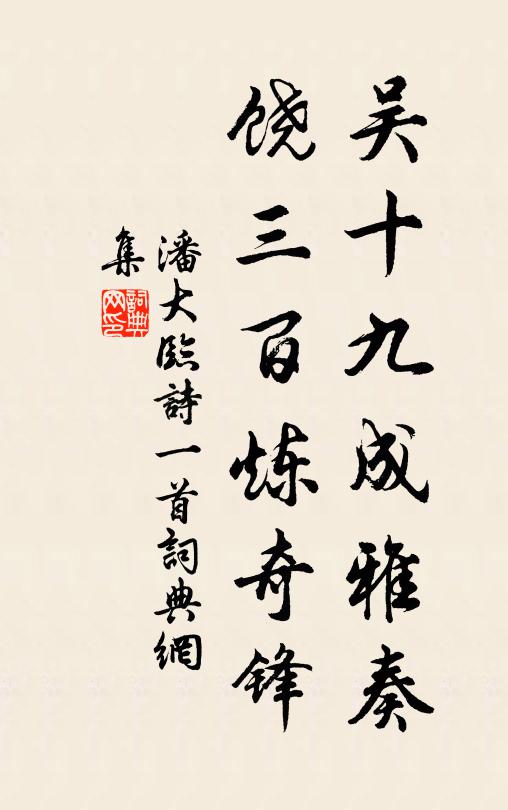 吴十九成雅奏
饶三百炼奇锋
潘大臨詩一首詞典網
集
詞典
网印